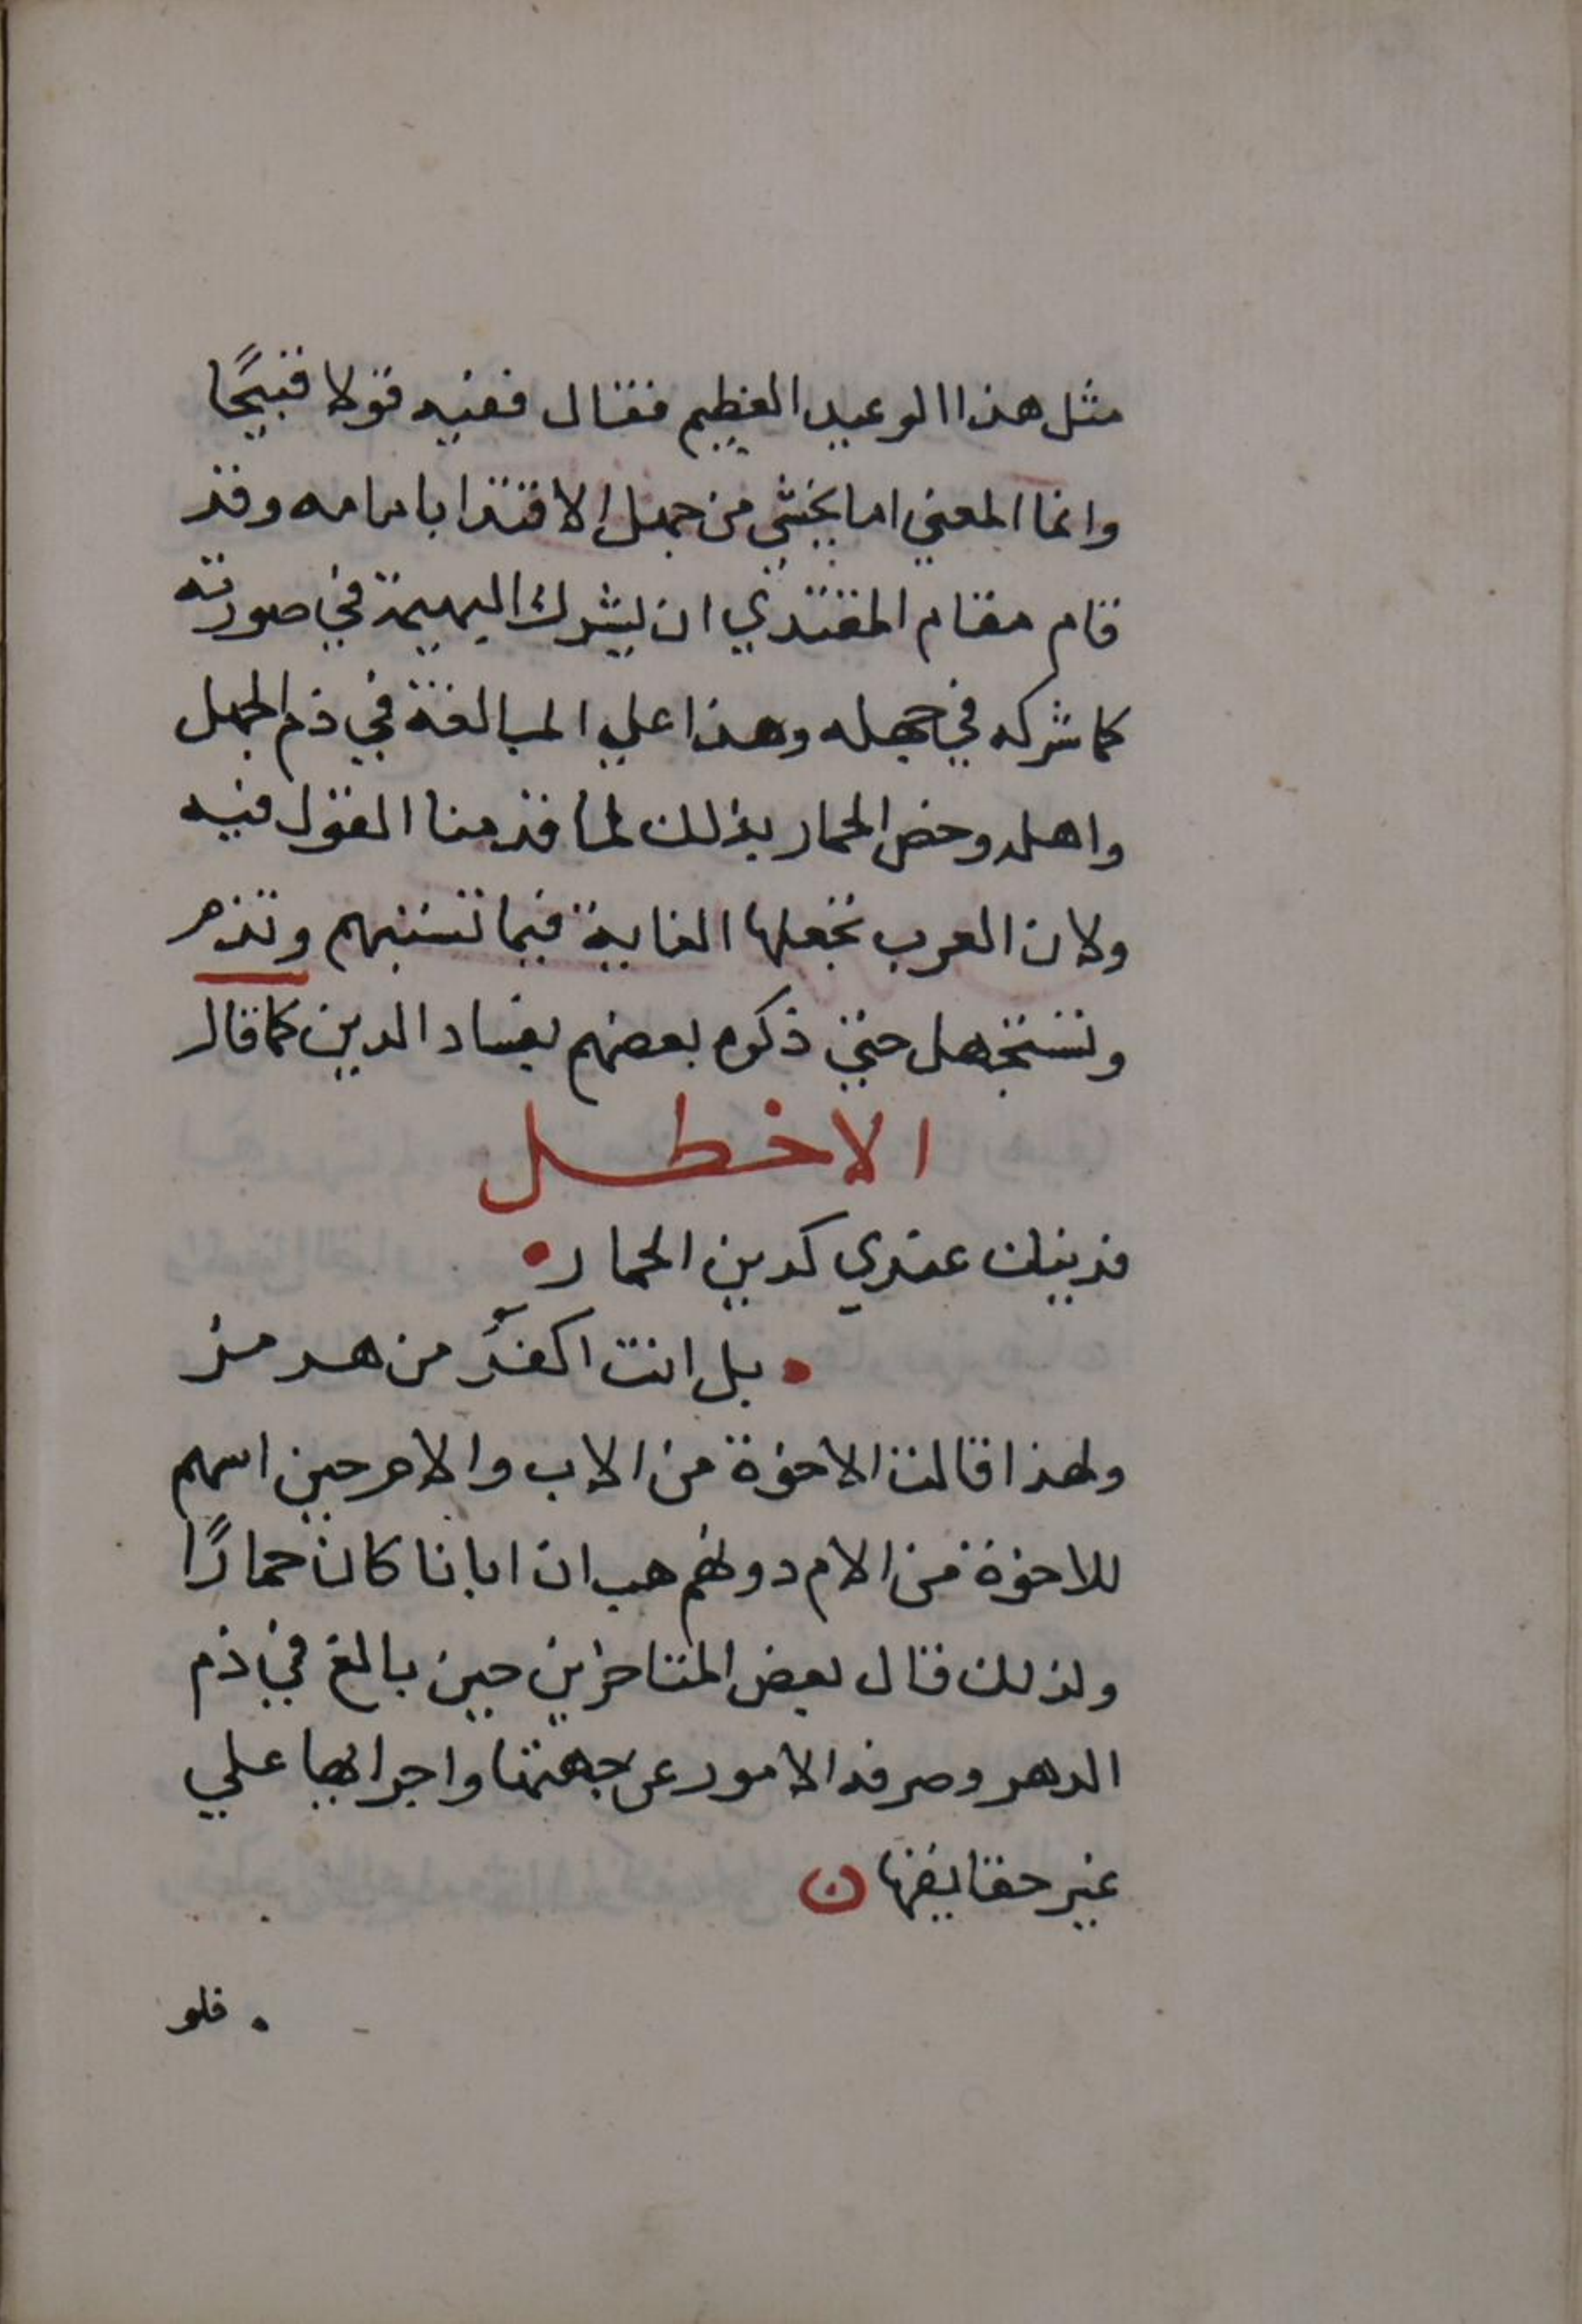 مثل هذا الوعيد العظيم فقال ففيه قولا قبيحًا
وانما المعني اما يخشي من جهل الاقتدا بامامه وقد
قام مقام المقتدي ان يشرك البهيمة في صورته
كما شركه في جهله وهذا علي المبالغة في ذم الجهل
واهله وخص الحمار بذلك لما قدمنا القول فيه
ولان العرب تجعلها الغاية فيما تستبهم وتذم
وتستجهل حتي ذكره بعضهم بفساد الدين كما قال
الاخطل
فدينك عندي كدين الحمار
بل انت اكفر من هرمز
ولهذا قالت الاخوة من الاب والام حين اسهم
للاخوة من الام دونهم هب ان ابانا كان حمارًا
ولذلك قال بعض المتاخرين حين بالغ في ذم
الدهر وصرفه الامور عن جهتها واجرايها علي
غير حقايقها ن
فلو